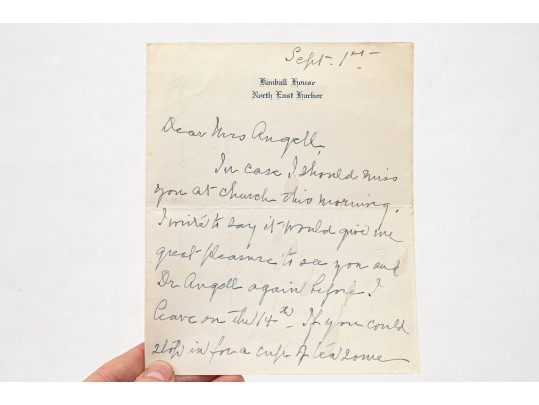 Sept. 1st
Kimball House
North East Harbor
Dear Mrs Angell,
In case I should miss
you at church this morning,
I write to say it would give me
great pleasure to see you and
Dr Angell again before I
leave on the 14th. If you could
stop in for a cup of tea some